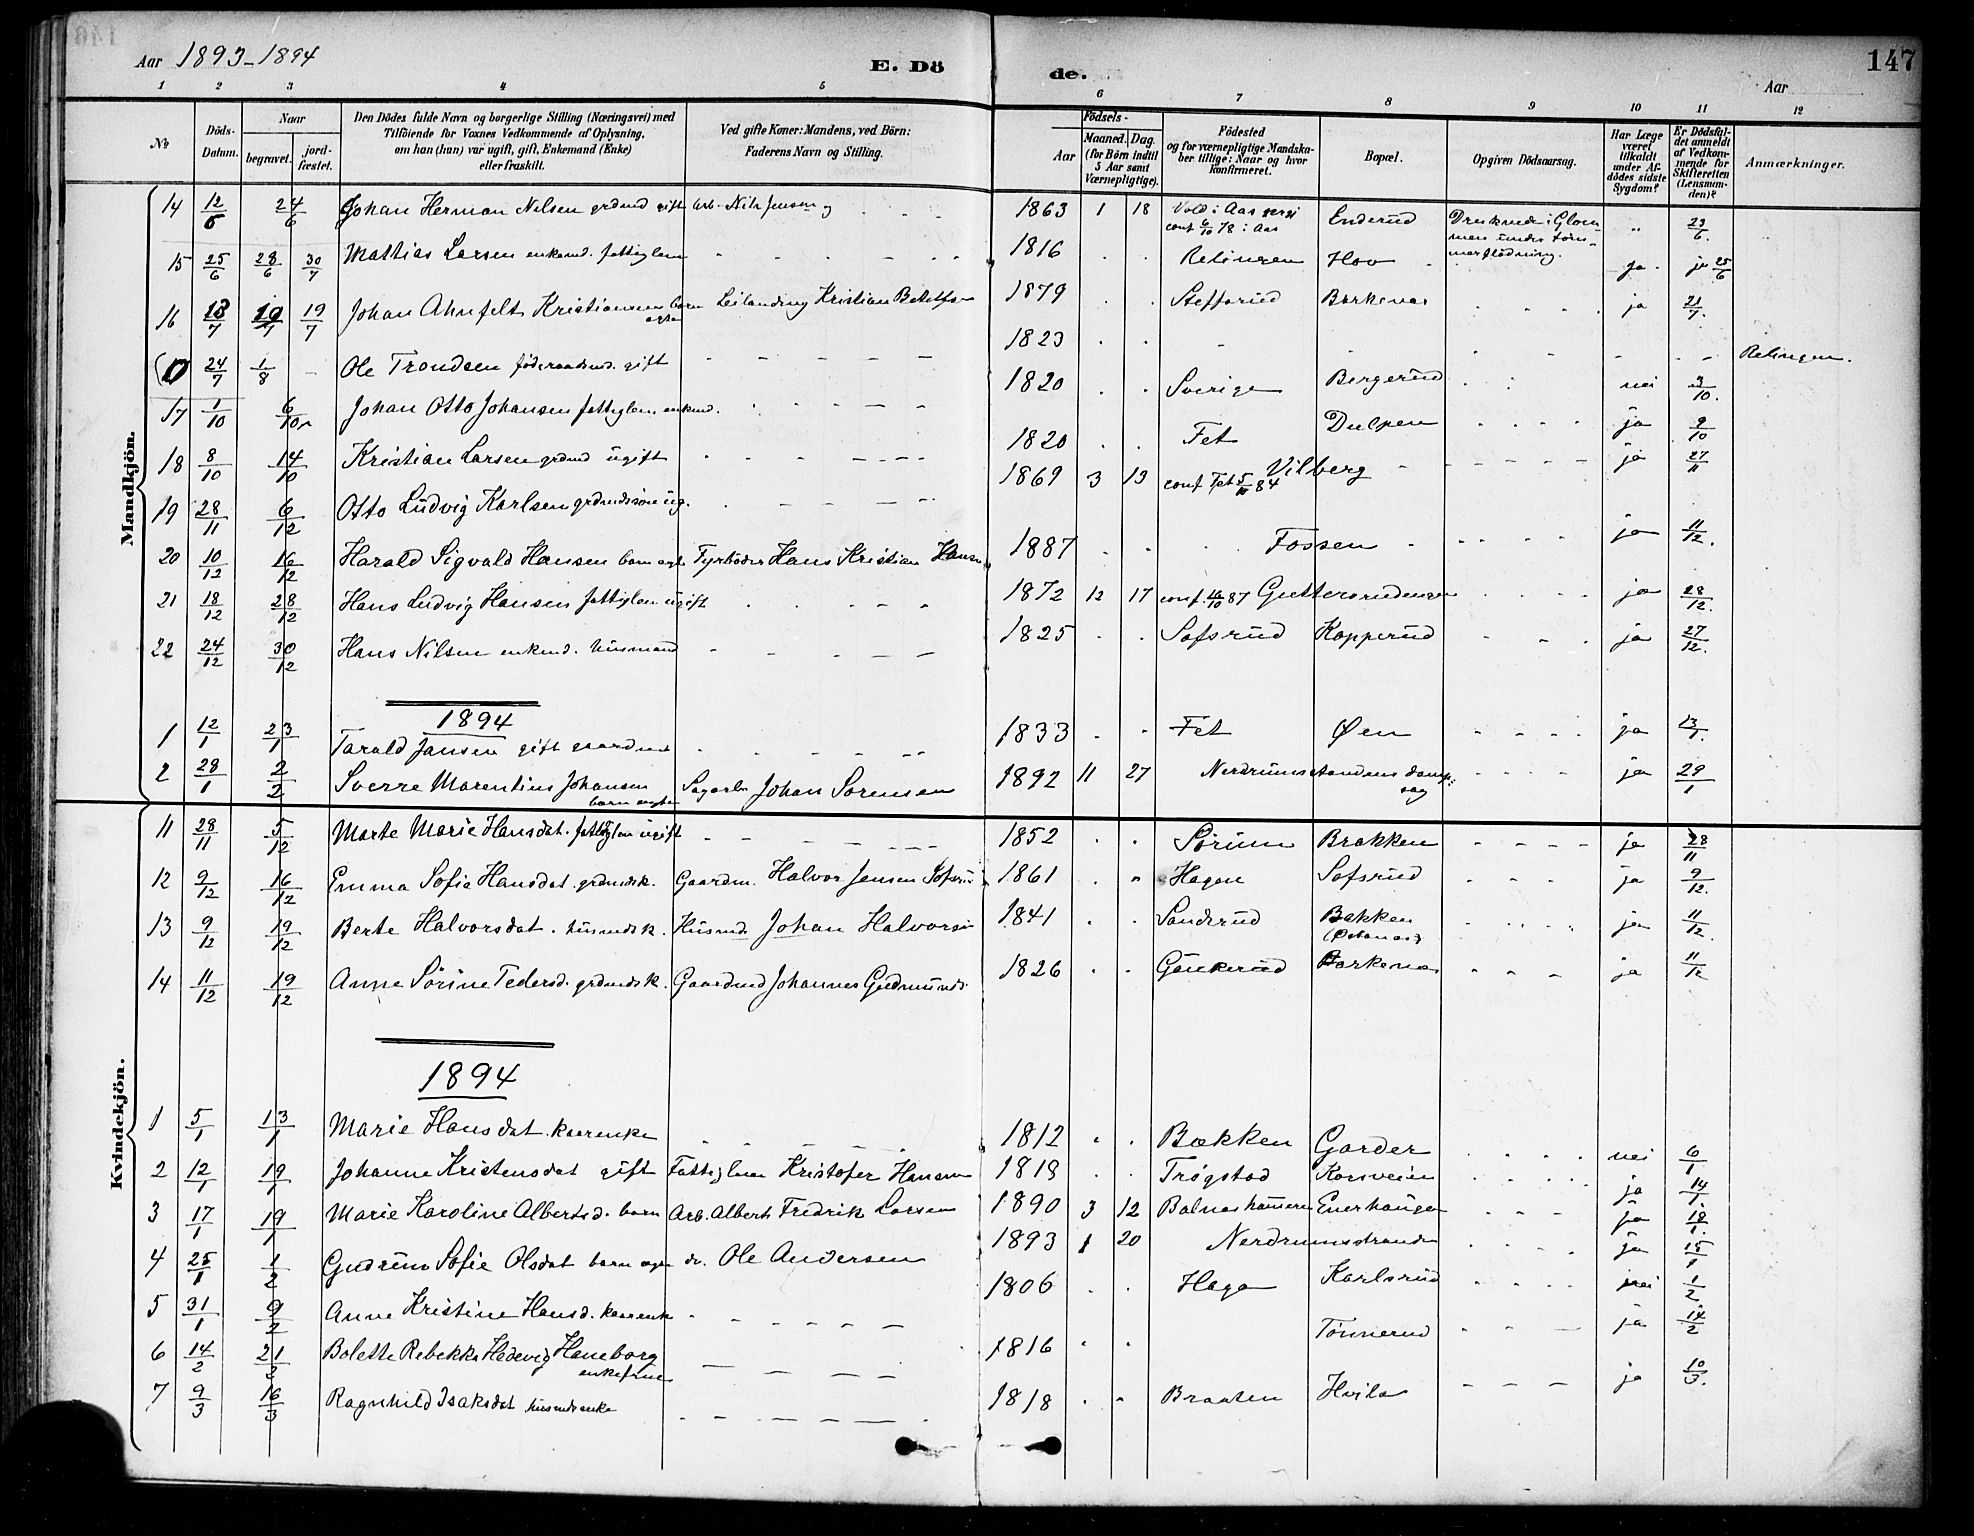 Aar 1893-1894 E. Dö de. Aar 147
1 2 3 4 5 6 7 8 9 10 11 12
No
Döds-Datum.
Naar
begravet. jord-fæstet.
Den Dödes fulde Navn og borgerlige Stilling (Næringsvei) med
Tilföiende for Voxnes Vedkommende af Oplysning,
om han (hun) var ugift, gift, Enkemand (Enke)
eller fraskilt.
Ved gifte Koner: Mandens, ved Börn:
Faderens Navn og Stilling.
Födsels-
Aar Maaned. Dag.
(for Börn indtil
5 Aar samt
Værnepligtige).
Födested
og for værnepligtige Mandska-
ber tillige: Naar og hvor
konfirmeret.
Bopæl.
Opgiven Dödsaarsag.
Har Læge
været
tilkaldt
under Af-
dödes sidste
Sygdom?
Er Dödsfal-
det anmeldt
af Vedkom-
mende for
Skifteretten
(Lensman-
den)?
Anmærkninger.
Mandkjön.
14 12/6 24/6 Johan Herman Nilsen grdmd gift Arb. Nils Jensen 1863 1 18 Vold i Aas conf 6/10 78 i Aas Enderud Druknede i Glommen under tømmerflødning. " 23/6.
15 25/6 28/6 30/7 Mattias Larsen enkemd. fattiglem 1816 Relingen Hov ja ja 25/6
16 13/7 19/7 19/7 Johan Ahnfelt Kristiansen barn ægte Leilending Kristian 1879 Steffarud Barkenes ja 21/7.
(0 24/7 1/8 Ole Trondsen føderaadsmd. gift 1823 Relingen.
17 1/10 6/10 Johan Otto Johansen fattiglem enkmd. 1820 Sverige Bergerud nei 3/10.
18 8/10 14/10 Kristian Larsen grdmd ugift 1820 Fet Dulpen ja 9/10
19 28/11 6/12 Otto Ludvig Karlsen grdmdssøn ug. 1869 3 19 conf Fet 5/10 84 Vilberg ja 27/11
20 10/12 16/12 Harald Sigvald Hansen barn ægte Fyrbøder Hans Kristian Hansen 1887 Fossen ja 11/12.
21 18/12 28/12 Hans Ludvig Hansen fattiglem ugift 1872 12 17 conf. 87 Guttersrudengen ja 28/12.
22 24/12 30/12 Hans Nilsen enkemd. husmand 1825 Sofsrud Kopperud ja 27/12.
1894
1 12/1 23/1 Tarald Jansen gift gaardmd 1833 Fet Øen ja 13/1.
2 28/1 2/2 Sverre Marentius Johansen barn ægte Sagarb. Johan Sørensen 1892 11 27 Nerdrumstrandens dampsag ja 29/1
Kvindekjön.
11 28/11 5/12 Marte Marie Hansdat. fattiglem ugift 1852 Sørum Brakken ja 28/11
12 9/12 16/12 Emma Sofie Hansdat. grdmdsk. Gaardm. Halvor Jensen Sofsrud 1861 Hagen Sofsrud ja 9/12.
13 9/12 19/12 Berte Halvorsdat. husmdsk. Husmd. Johan Halvorsen 1841 Sanderud Bakken ja 11/12.
14 11/12 19/12 Anne Sørine Pedersd. grdmdsk. Gaardmd Johannes Gudmunds. 1826 Gaukerud Barkenes ja 11/12
1894
1 5/1 13/1 Marie Hansdat. kaarenke 1812 Bækken Garder nei 6/1
2 12/1 19/1 Johanne Kristensdat gift Fattiglem Kristofer Hansen 1819 Trøgstad Korsveien ja 14/1
3 17/1 19/1 Marie Karoline Albertsd. barn Arb. Albert Fredrik Larsen 1890 3 12 Balneshammeren Enerhaugen ja 18/1.
4 25/1 1/2 Gudrun Sofie Olsdat barn ægte do. Ole Andersen 1893 1 20 Nerdrumsstranden ja 15/1
5 31/1 9/2 Anne Kristine Hansd. kaarenke 1806 Haga Karlsrud nei 1/2
6 14/2 21/2 Bolette Rebekka Hedevig Haneborg enkefrue 1816 Tønnerud ja 14/2
7 9/3 16/3 Ragnhild Isaksdat husmdsenke 1818 Braaten Hvila ja 10/3.